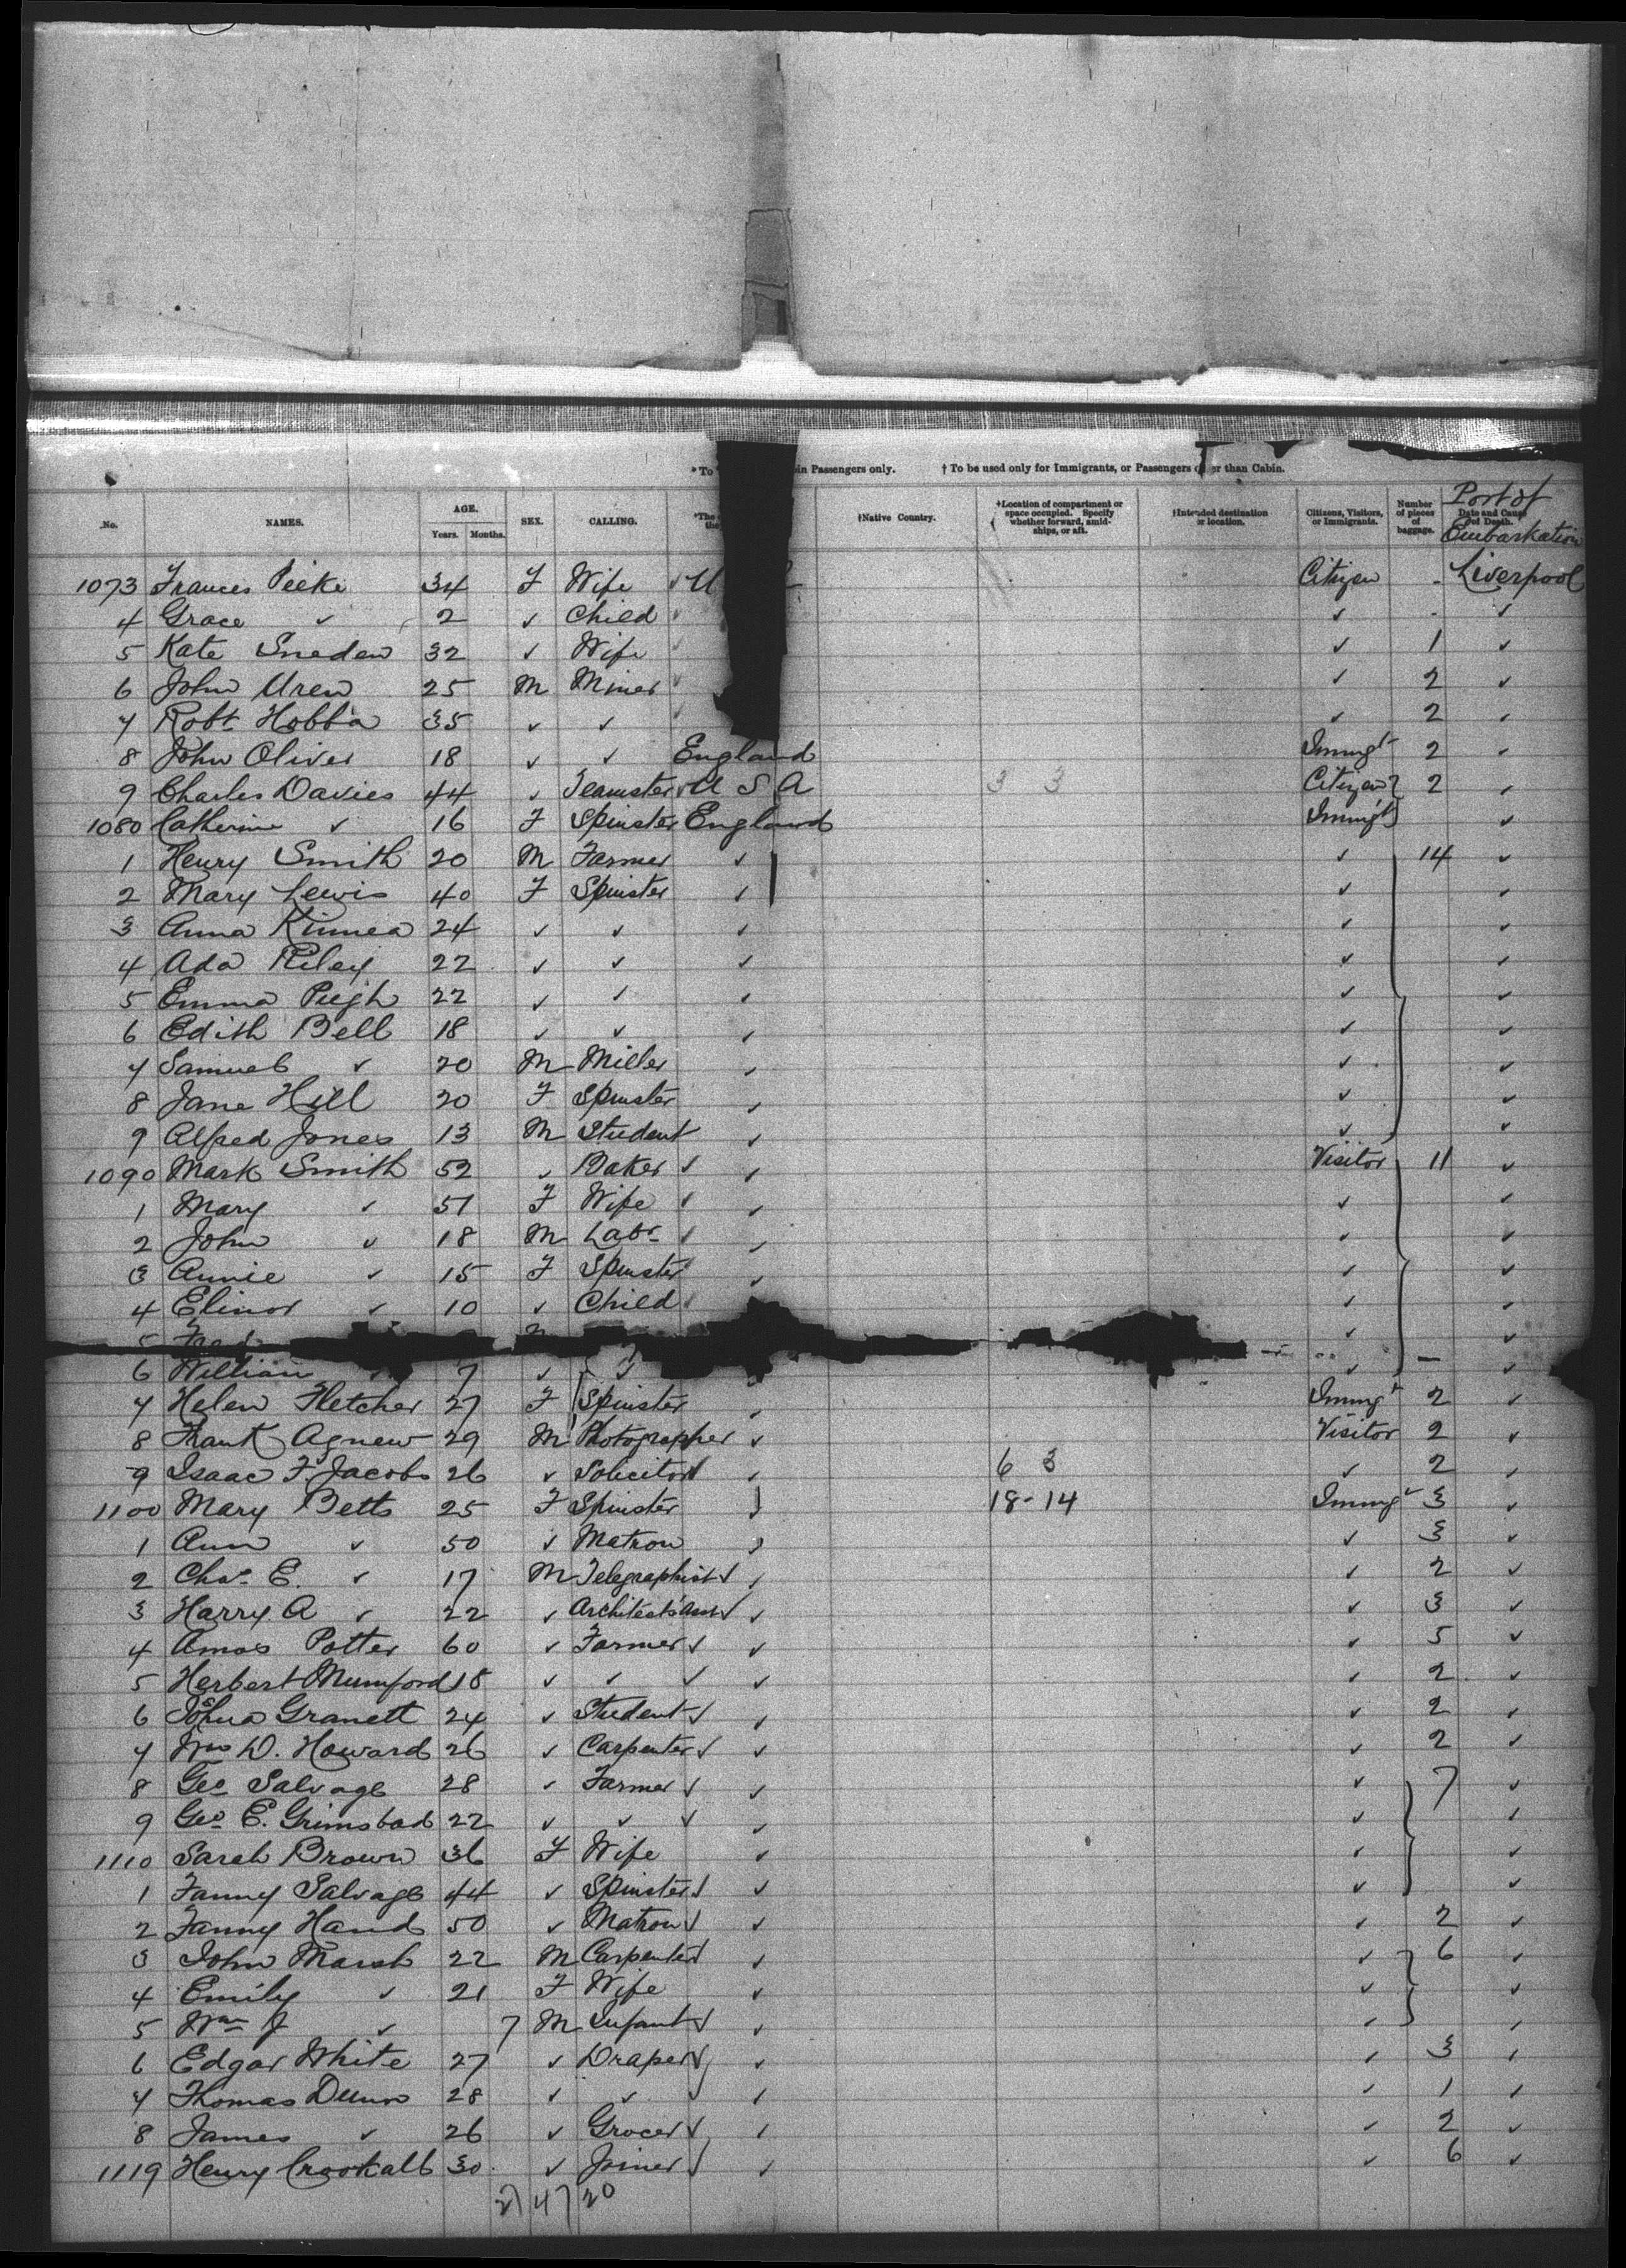 *To in Passengers only. † To be used only for Immigrants, or Passengers er than Cabin.
No. NAMES. AGE. Years. Months. SEX. CALLING. *The the †Native Country. †Location of compartment or space occupied. Specify whether forward, amid-ships, or aft. †Intended destination or location. Citizens, Visitors, or Immigrants. Number of pieces of baggage. Date and Cause of Death. Port of Embarkation
1073 Frances Peeke 34 F Wife ✓ U Citizen - Liverpool
4 Grace ✓ 2 ✓ Child ✓ ✓ - ✓
5 Kate Sneden 32 ✓ Wife ✓ ✓ 1 ✓
6 John Uren 25 M Miner ✓ ✓ 2 ✓
7 Robt Hobba 35 ✓ ✓ ✓ ✓ 2 ✓
8 John Oliver 18 ✓ ✓ England Immigt 2 ✓
9 Charles Davies 44 ✓ Teamster ✓ U S A 3 3 Citizen 2 ✓
1080 Catherine ✓ 16 F Spinster England Immigt ✓
1 Henry Smith 20 M Farmer ✓ ✓ 14 ✓
2 Mary Lewis 40 F Spinster ✓ ✓ ✓
3 Anna Kinnea 24 ✓ ✓ ✓ ✓ ✓
4 Ada Riley 22 ✓ ✓ ✓ ✓ ✓
5 Emma Pugh 22 ✓ ✓ ✓ ✓ ✓
6 Edith Bell 18 ✓ ✓ ✓ ✓ ✓
7 Samuel ✓ 20 M Miller ✓ ✓ ✓
8 Jane Hill 20 F Spinster ✓ ✓ ✓
9 Alfred Jones 13 M Student ✓ ✓ ✓
1090 Mark Smith 52 ✓ Baker ✓ ✓ Visitor 11 ✓
1 Mary ✓ 51 F Wife ✓ ✓ ✓ ✓
2 John ✓ 18 M Labr ✓ ✓ ✓ ✓
3 Annie ✓ 15 F Spinster ✓ ✓ ✓
4 Elinor ✓ 10 ✓ Child ✓ ✓ ✓
5 ✓ ✓
6 William 7 ✓ ✓ ✓ - ✓
7 Helen Fletcher 27 F Spinster ✓ Immigt 2 ✓
8 Frank Agnew 29 M Photographer ✓ Visitor 2 ✓
9 Isaac F. Jacobs 26 ✓ Solicitor ✓ ✓ 6 3 ✓ 2 ✓
1100 Mary Betts 25 F Spinster ✓ 18-14 Immigt 3 ✓
1 Ann ✓ 50 ✓ Matron ✓ ✓ 3 ✓
2 Chas E. ✓ 17 M Telegraphist ✓ ✓ ✓ 2 ✓
3 Harry A ✓ 22 ✓ Architects Asst ✓ ✓ ✓ 3 ✓
4 Amos Potter 60 ✓ Farmer ✓ ✓ ✓ 5 ✓
5 Herbert Mumford 18 ✓ ✓ ✓ ✓ ✓ 2 ✓
6 Granett 24 ✓ Student ✓ ✓ ✓ 2 ✓
7 Wm D. Howard 26 ✓ Carpenter ✓ ✓ ✓ 2 ✓
8 Geo Salvage 28 ✓ Farmer ✓ ✓ ✓ 7 ✓
9 Geo E. 22 ✓ ✓ ✓ ✓ ✓ ✓
1110 Sarah Brown 36 F Wife ✓ ✓ ✓
1 Fanny Salvage 44 ✓ Spinster ✓ ✓ ✓ ✓
2 Fanny Hand 50 ✓ Matron ✓ ✓ ✓ 2 ✓
3 John Marsh 22 M Carpenter ✓ ✓ ✓ 6 ✓
4 Emily ✓ 21 F Wife ✓ ✓ ✓
5 Wm J ✓ 7 M Infant ✓ ✓ ✓ ✓
6 Edgar White 27 ✓ Draper ✓ ✓ ✓ 3 ✓
7 Thomas Dunn 28 ✓ ✓ ✓ ✓ ✓ 1 ✓
8 James ✓ 26 ✓ Grocer ✓ ✓ ✓ 2 ✓
1119 Henry Crookall 30 ✓ Joiner ✓ ✓ ✓ 6 ✓
27 47 20